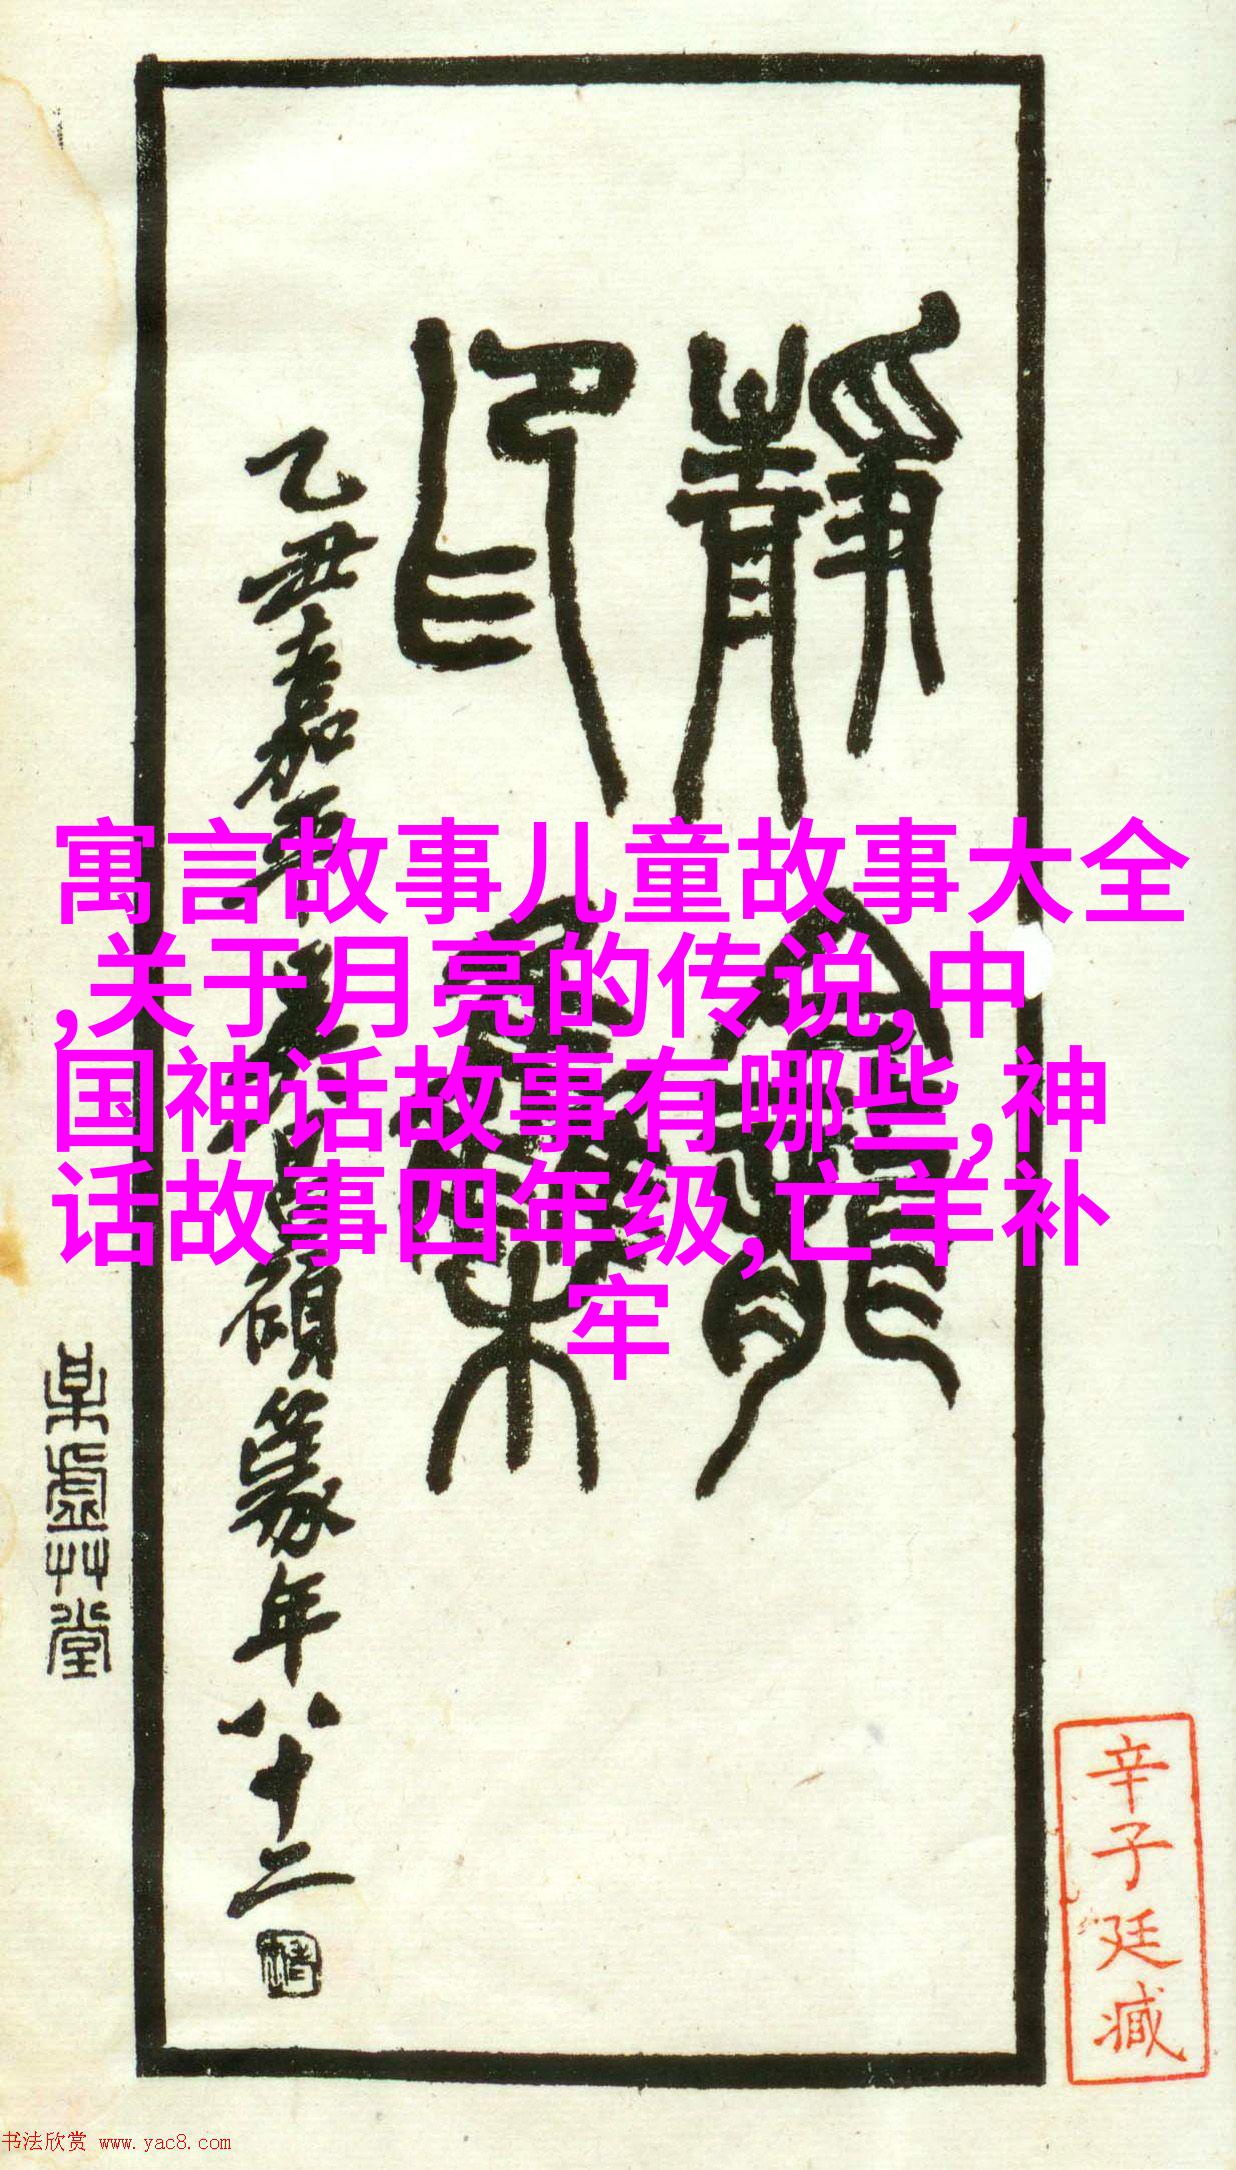 寓言故事儿童故事大全
,关于月亮的传说,中
国神话故事有哪些,神
话故事四年级,亡羊补
牢
靜龕
印集
乙丑嘉平吳昌碩篆年八十二
某虛艸堂
辛子廷臧
书法欣赏 www.yac8.com